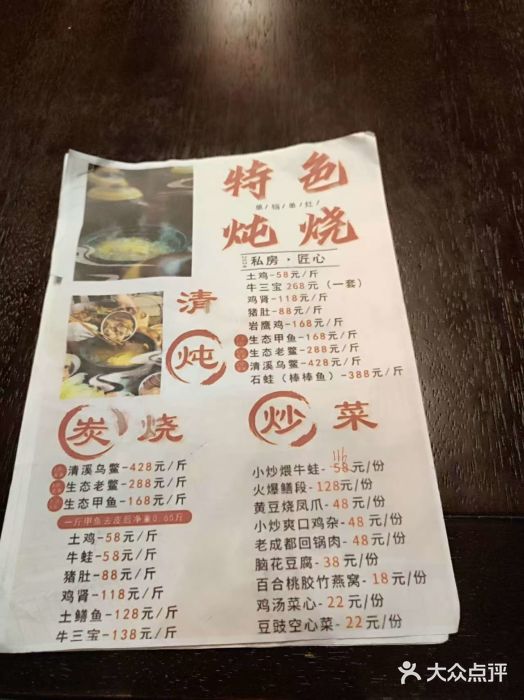 特色
单/锅/单/灶/
炖烧
私房·匠心
清炖
土鸡-58元/斤
牛三宝 268元（一套）
鸡肾-118元/斤
猪肚-88元/斤
岩鹰鸡-168元/斤
生态甲鱼-168元/斤
生态老鳖-288元/斤
清溪乌鳖-428元/斤
石蛙（棒棒鱼）-388元/斤
炭烧
清溪乌鳖-428元/斤
生态老鳖-288元/斤
生态甲鱼-168元/斤
一斤甲鱼去皮后净重0.65斤
土鸡-58元/斤
牛蛙-58元/斤
猪肚-88元/斤
鸡肾-118元/斤
土鳝鱼-128元/斤
牛三宝-138元/斤
炒菜
小炒煨牛蛙-58元/份
火爆鳝段-128元/份
黄豆烧凤爪-48元/份
小炒爽口鸡杂-48元/份
老成都回锅肉-48元/份
脑花豆腐-38元/份
百合桃胶竹燕窝-18元/份
鸡汤菜心-22元/份
豆豉空心菜-22元/份
大众点评